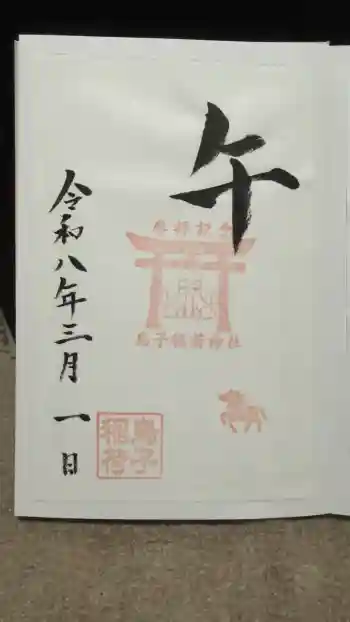 午
参拝記念
烏子稲荷神社
令和八年三月一日
烏子
稲荷